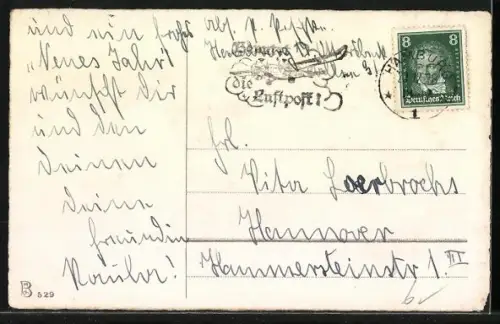 und ein frohes
"Neues Jahr"
wünscht Dir
und den
Deinen
Deine
Freundin
Abs.
Benutzt
die
Luftpost!
8 8
Deutsches Reich
1
Frl.
Vita Loerbrochs
Hannover
Hammersteinstr 1. III
B 529